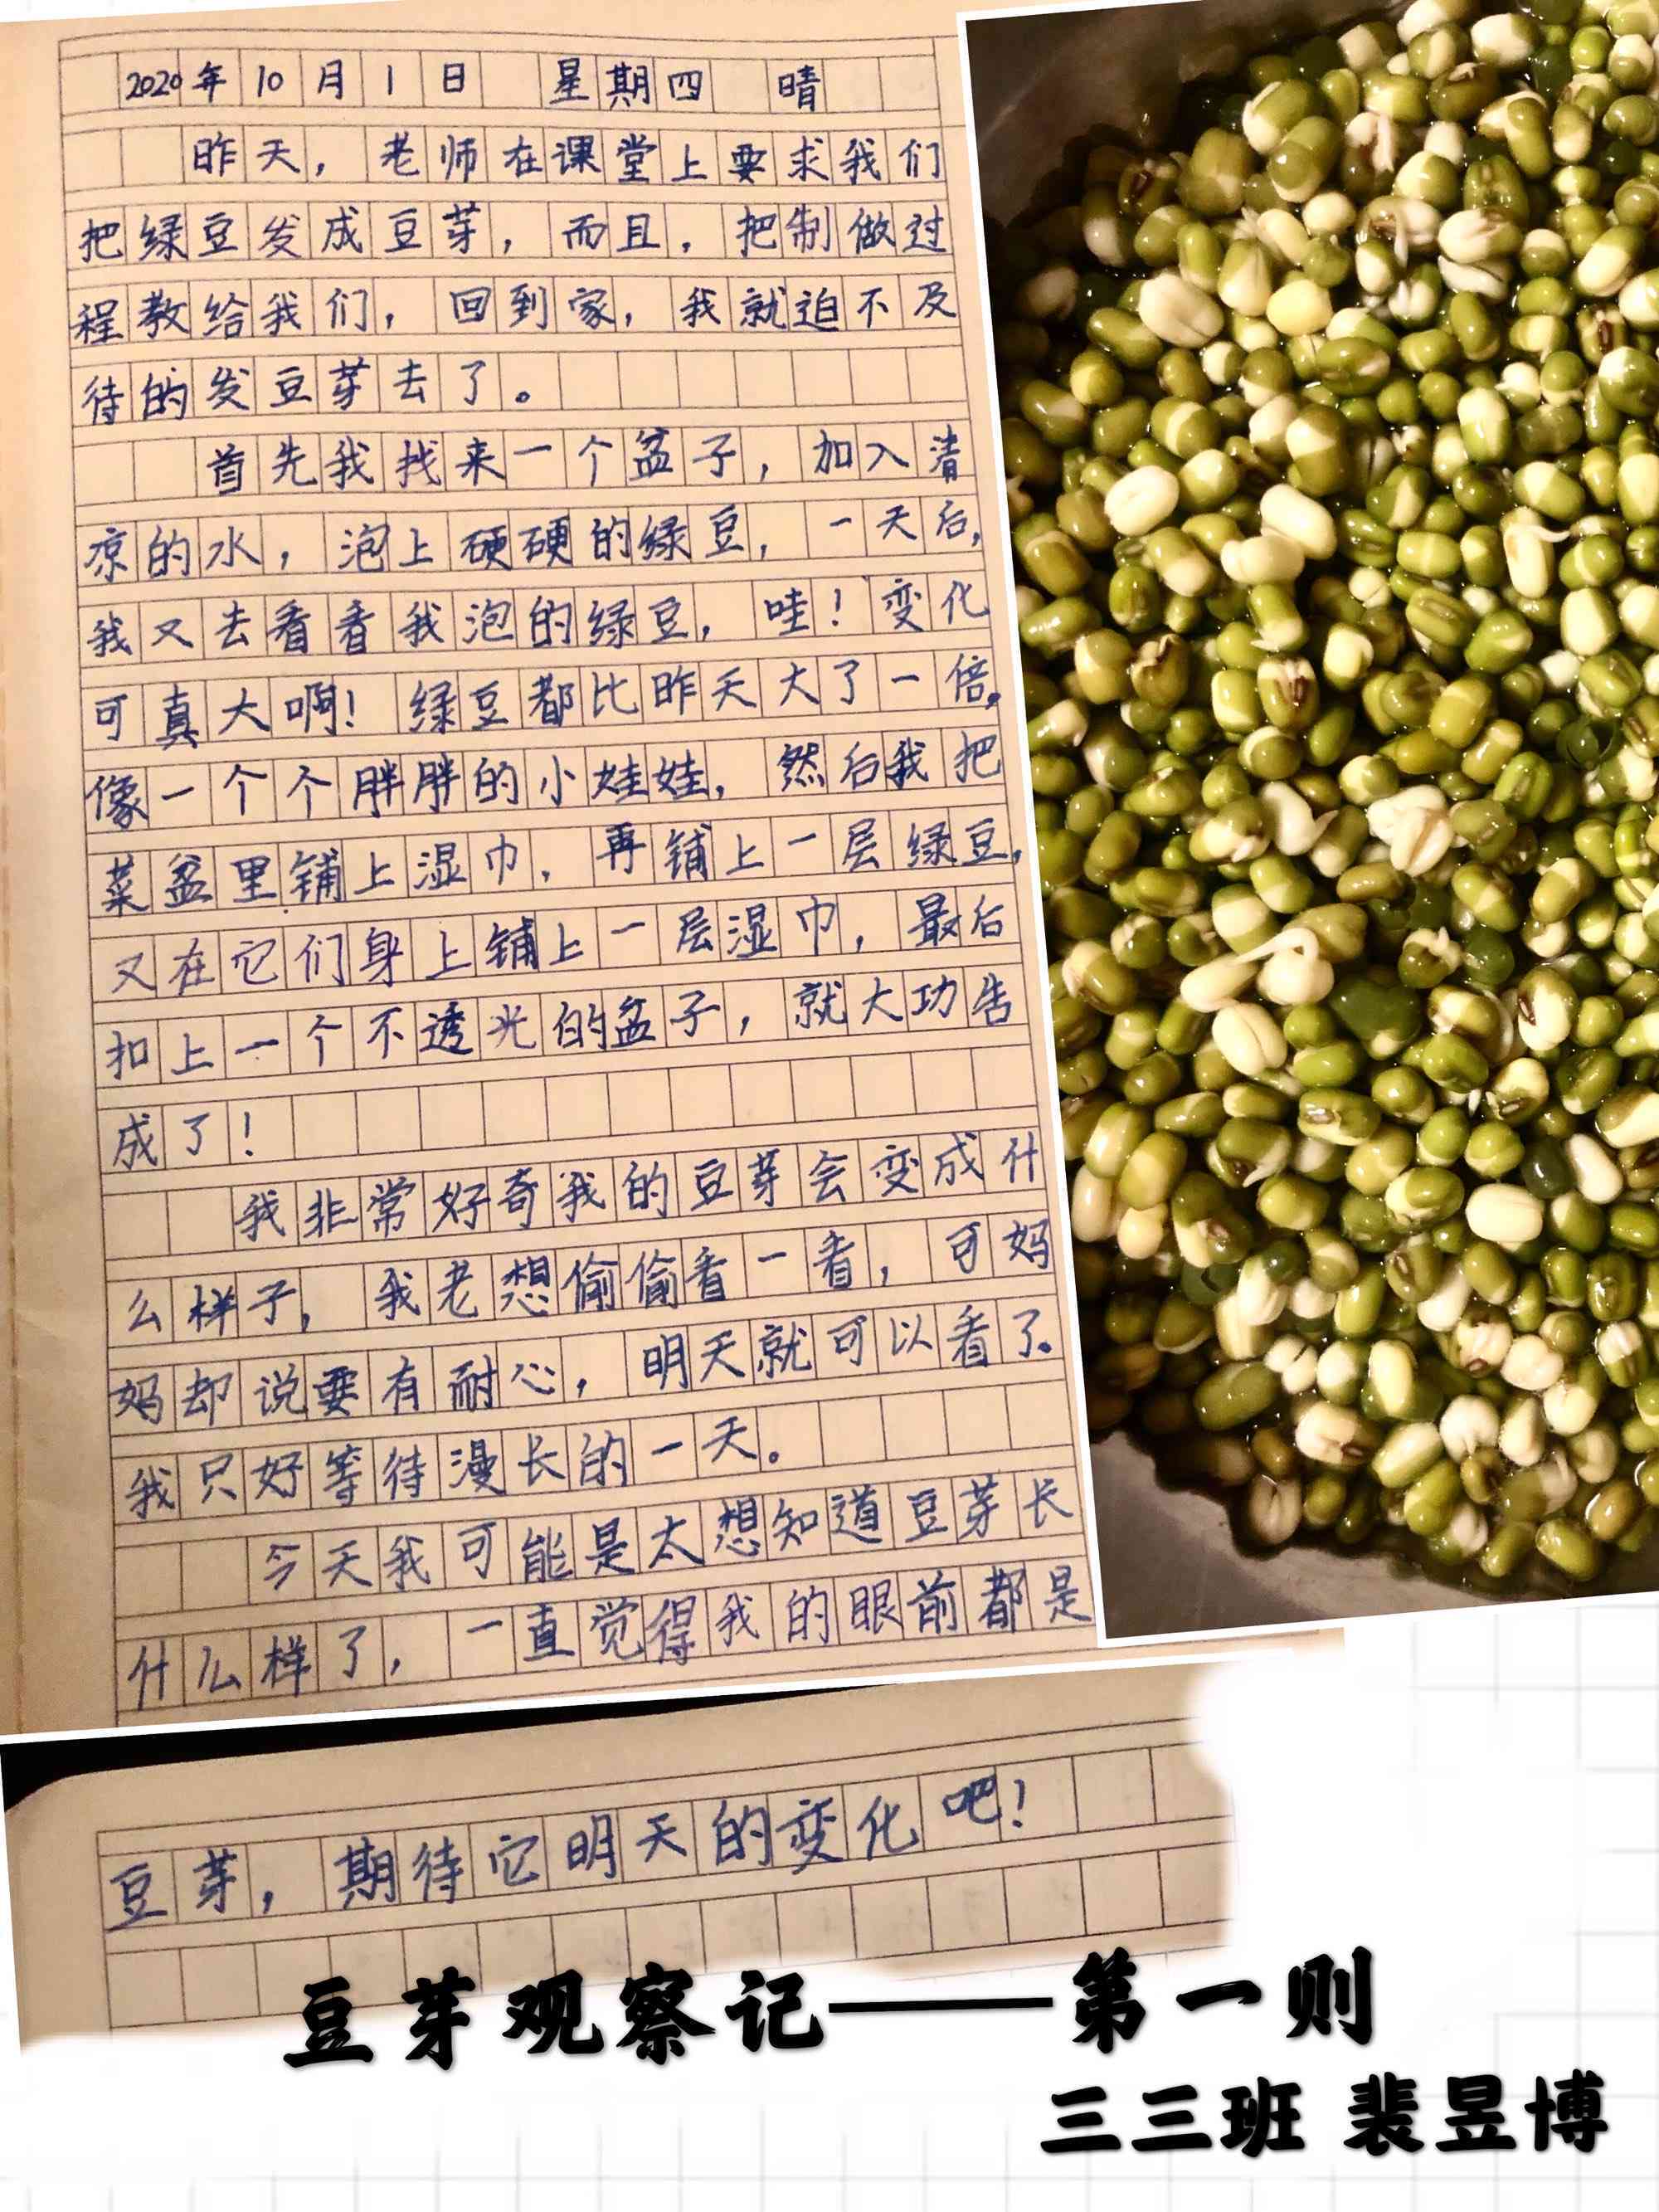 2020年10月1日 星期四 晴
昨天，老师在课堂上要求我们
把绿豆发成豆芽，而且，把制做过
程教给我们，回到家，我就迫不及
待的发豆芽去了。
首先我找来一个盆子，加入清
凉的水，泡上硬硬的绿豆，一天后，
我又去看看我泡的绿豆，哇！变化
可真大啊！绿豆都比昨天大了一倍。
像一个个胖胖的小娃娃，然后我把
菜盆里铺上湿巾，再铺上一层绿豆，
又在它们身上铺上一层湿巾，最后
扣上一个不透光的盆子，就大功告
成了！
我非常好奇我的豆芽会变成什
么样子，我老想偷偷看一看，可妈
妈却说要有耐心，明天就可以看了。
我只好等待漫长的一天。
今天我可能是太想知道豆芽长
什么样了，一直觉得我的眼前都是
豆芽，期待它明天的变化吧！
豆芽观察记——第一则
三三班 裴昱博